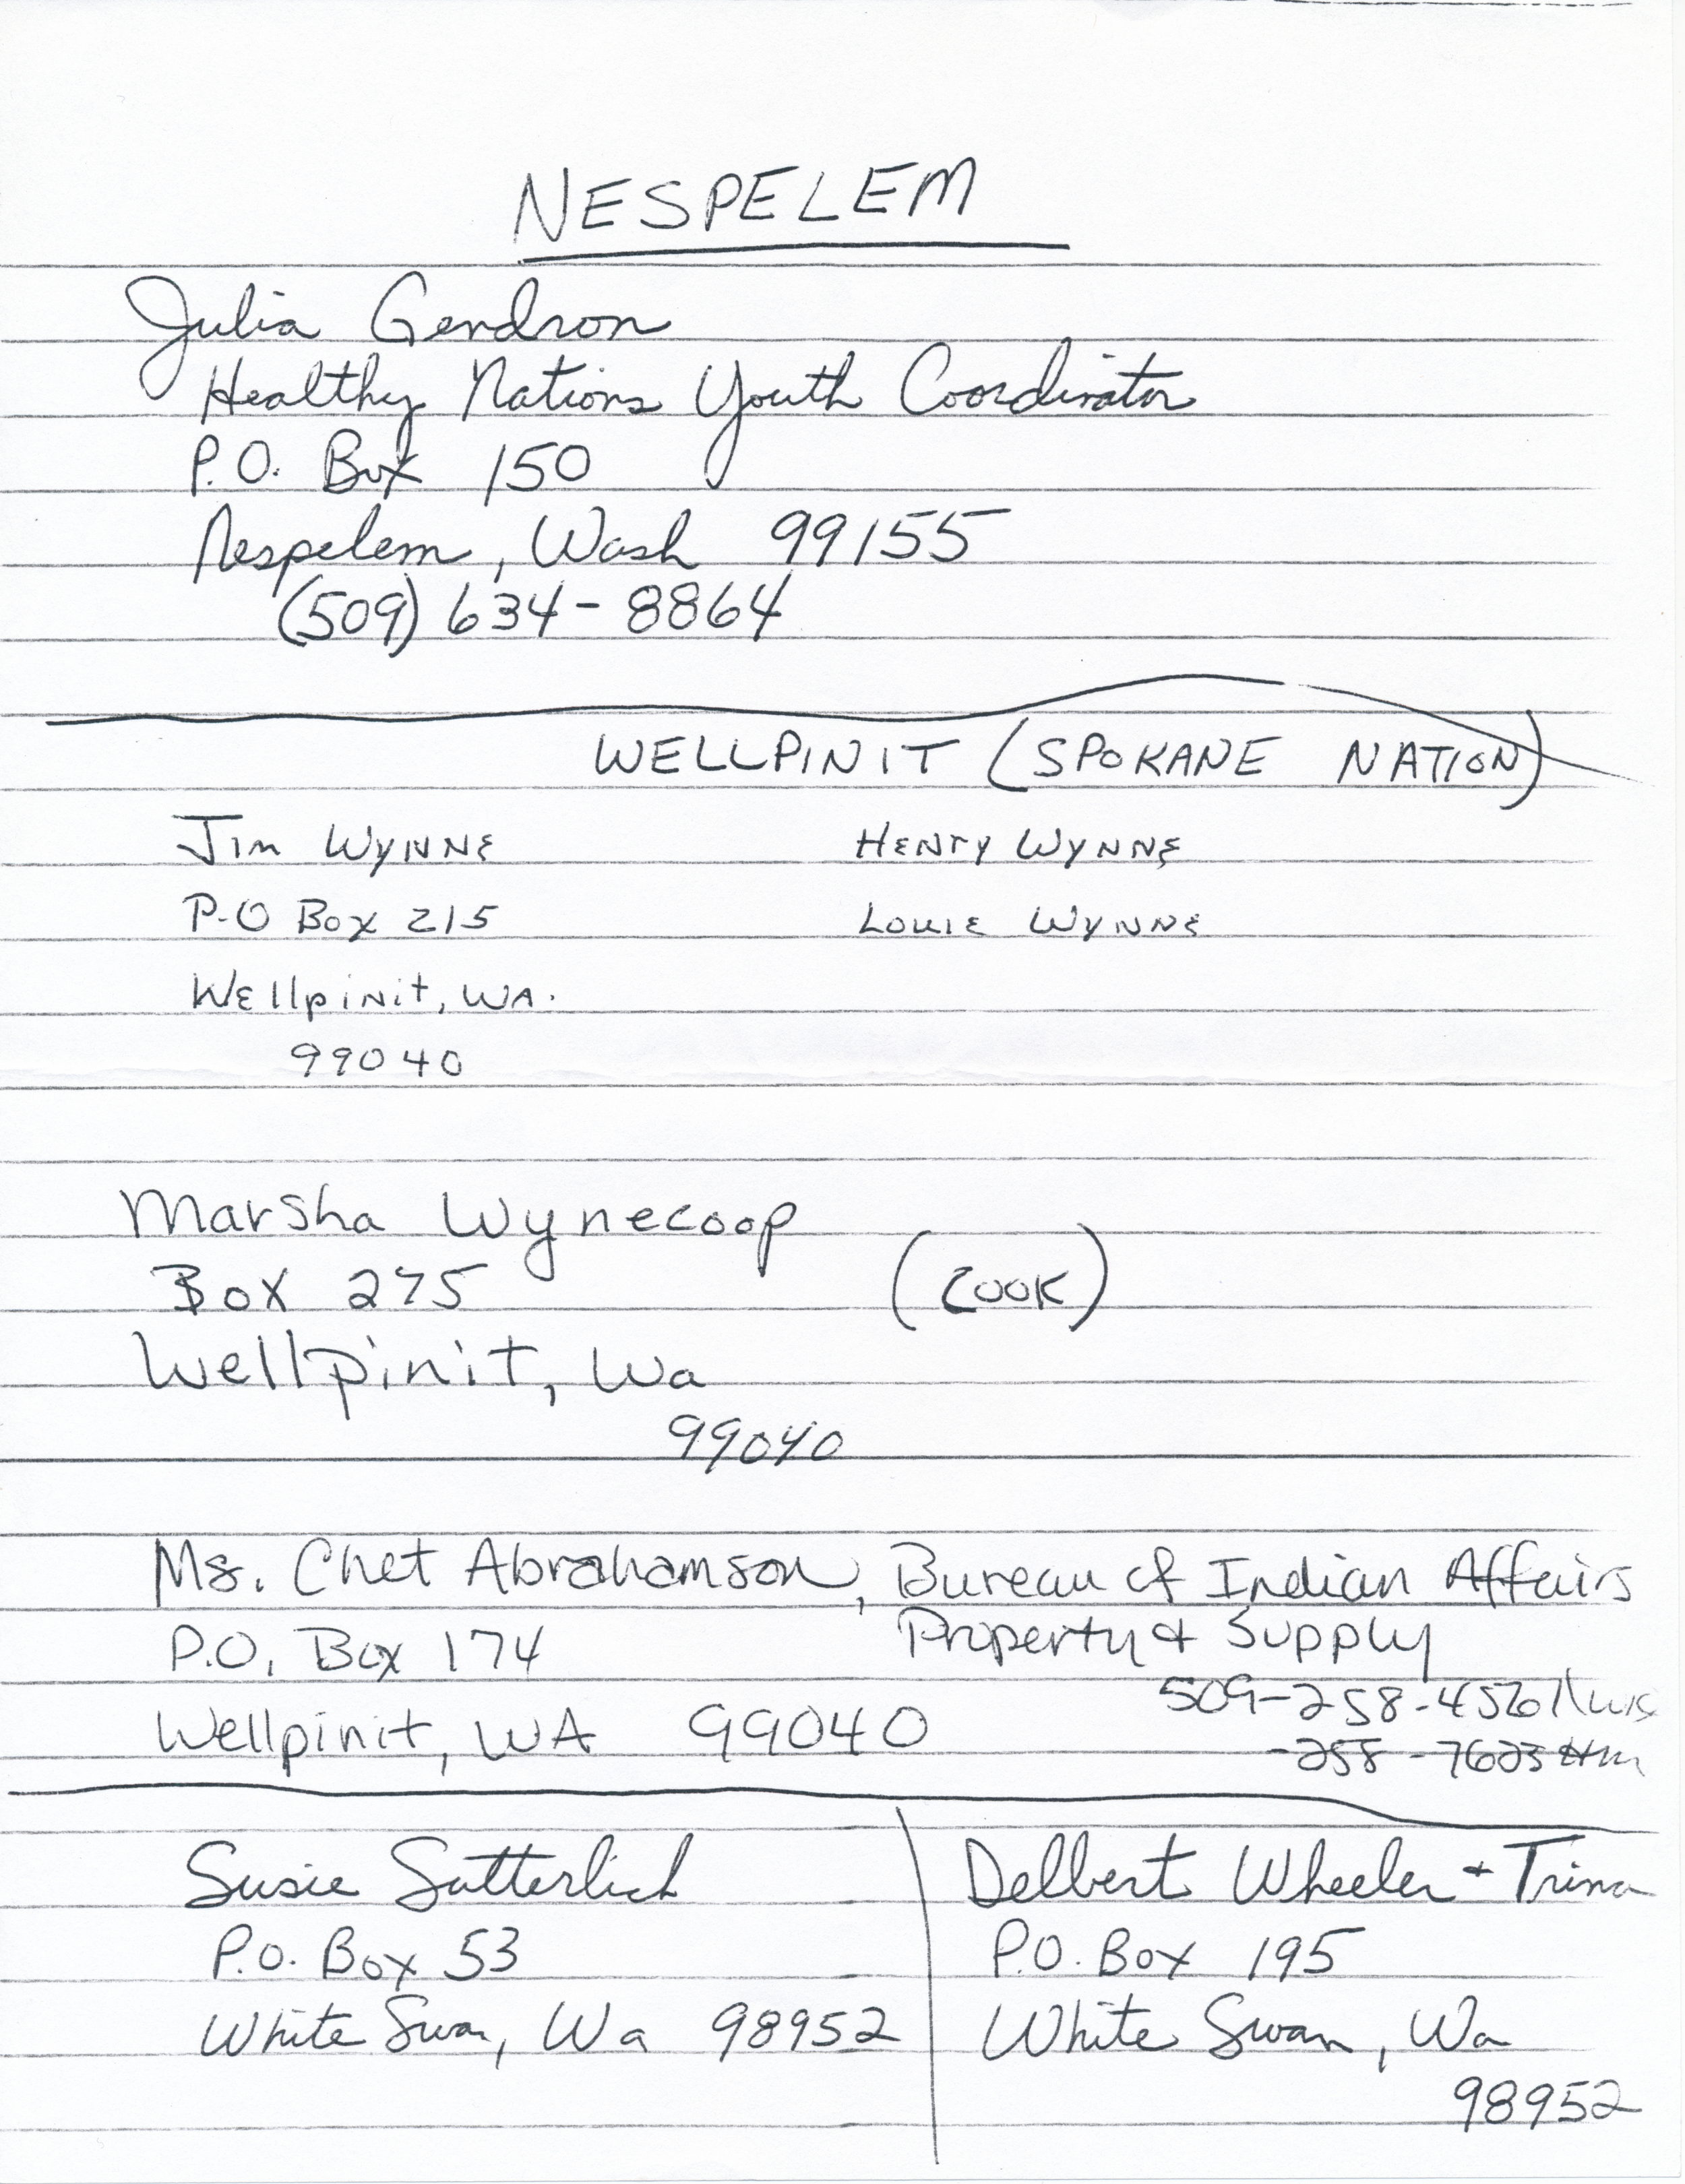 NESPELEM
Julia Gendron
Healthy Nations Youth Coordinator
P.O. Box 150
Nespelem, Wash 99155
(509) 634-8864
WELLPINIT (SPOKANE NATION)
Jim WYNNE
P-O Box 215
Wellpinit, WA.
99040
HENRY WYNNE
LOUIE WYNNE
Marsha Wynecoop
Box 275
(COOK)
Wellpinit, Wa
99040
Ms. Chet Abrahamson, Bureau of Indian Affairs
Property & Supply
P.O. Box 174
Wellpinit, WA 99040
509-258-4561
-258-7623 Hm
Susie Satterlich
P.O. Box 53
White Swan, Wa 98952
Delbert Wheeler + Trina
P.O. Box 195
White Swan, Wa
98952